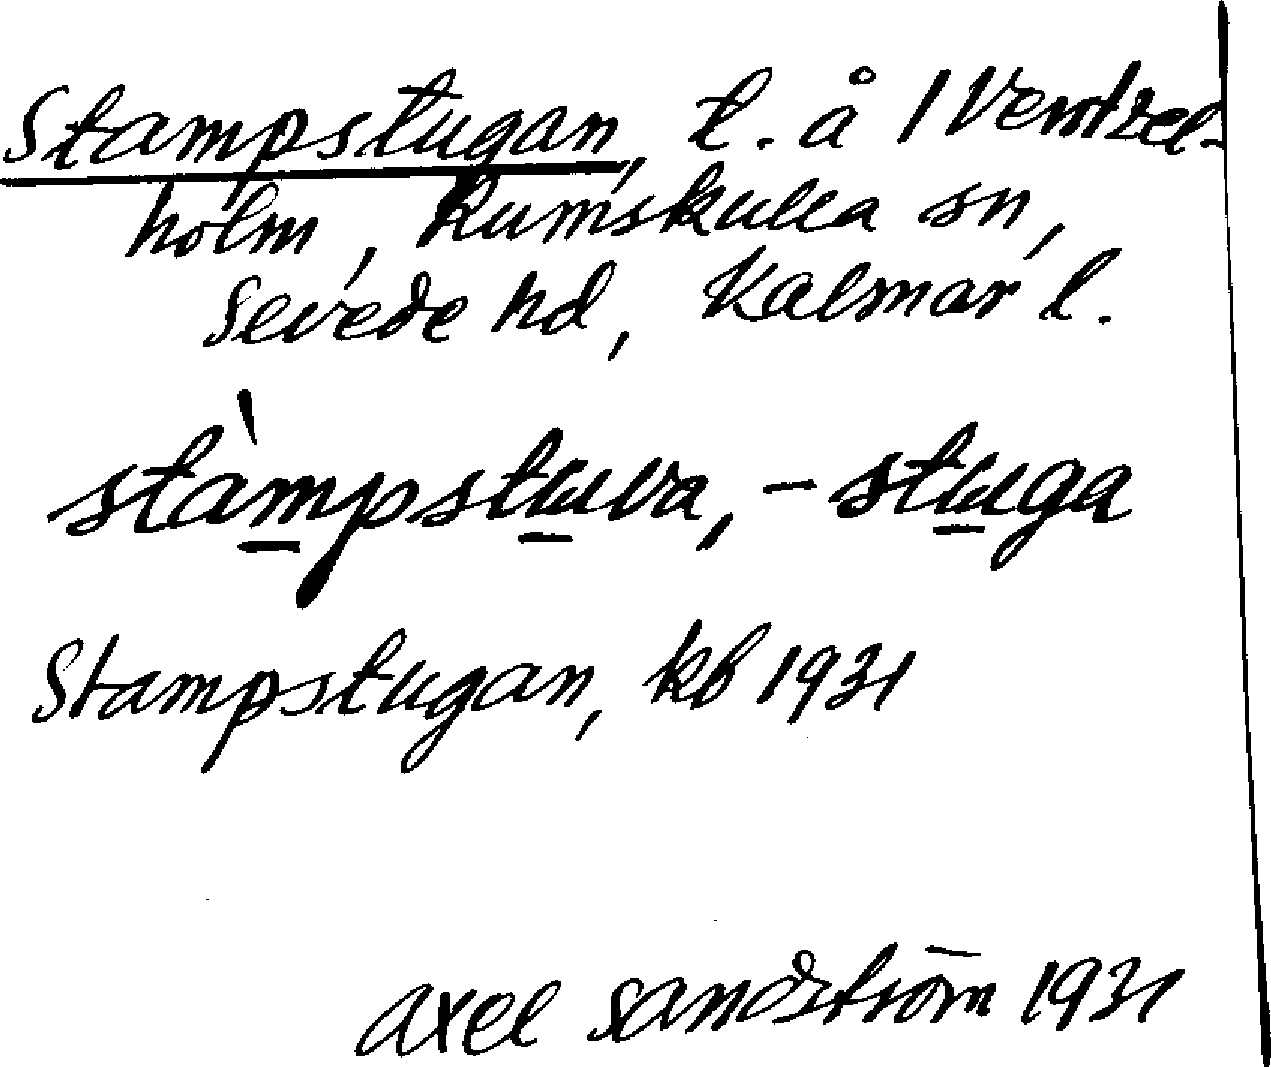 Stampstugan, t. å 1 Ventzel-
holm, Rumskulla sn,
Sevede hd, Kalmar l.
stàmpstuva, -stuga
Stampstugan, kb 1931
Axel Sandström 1931